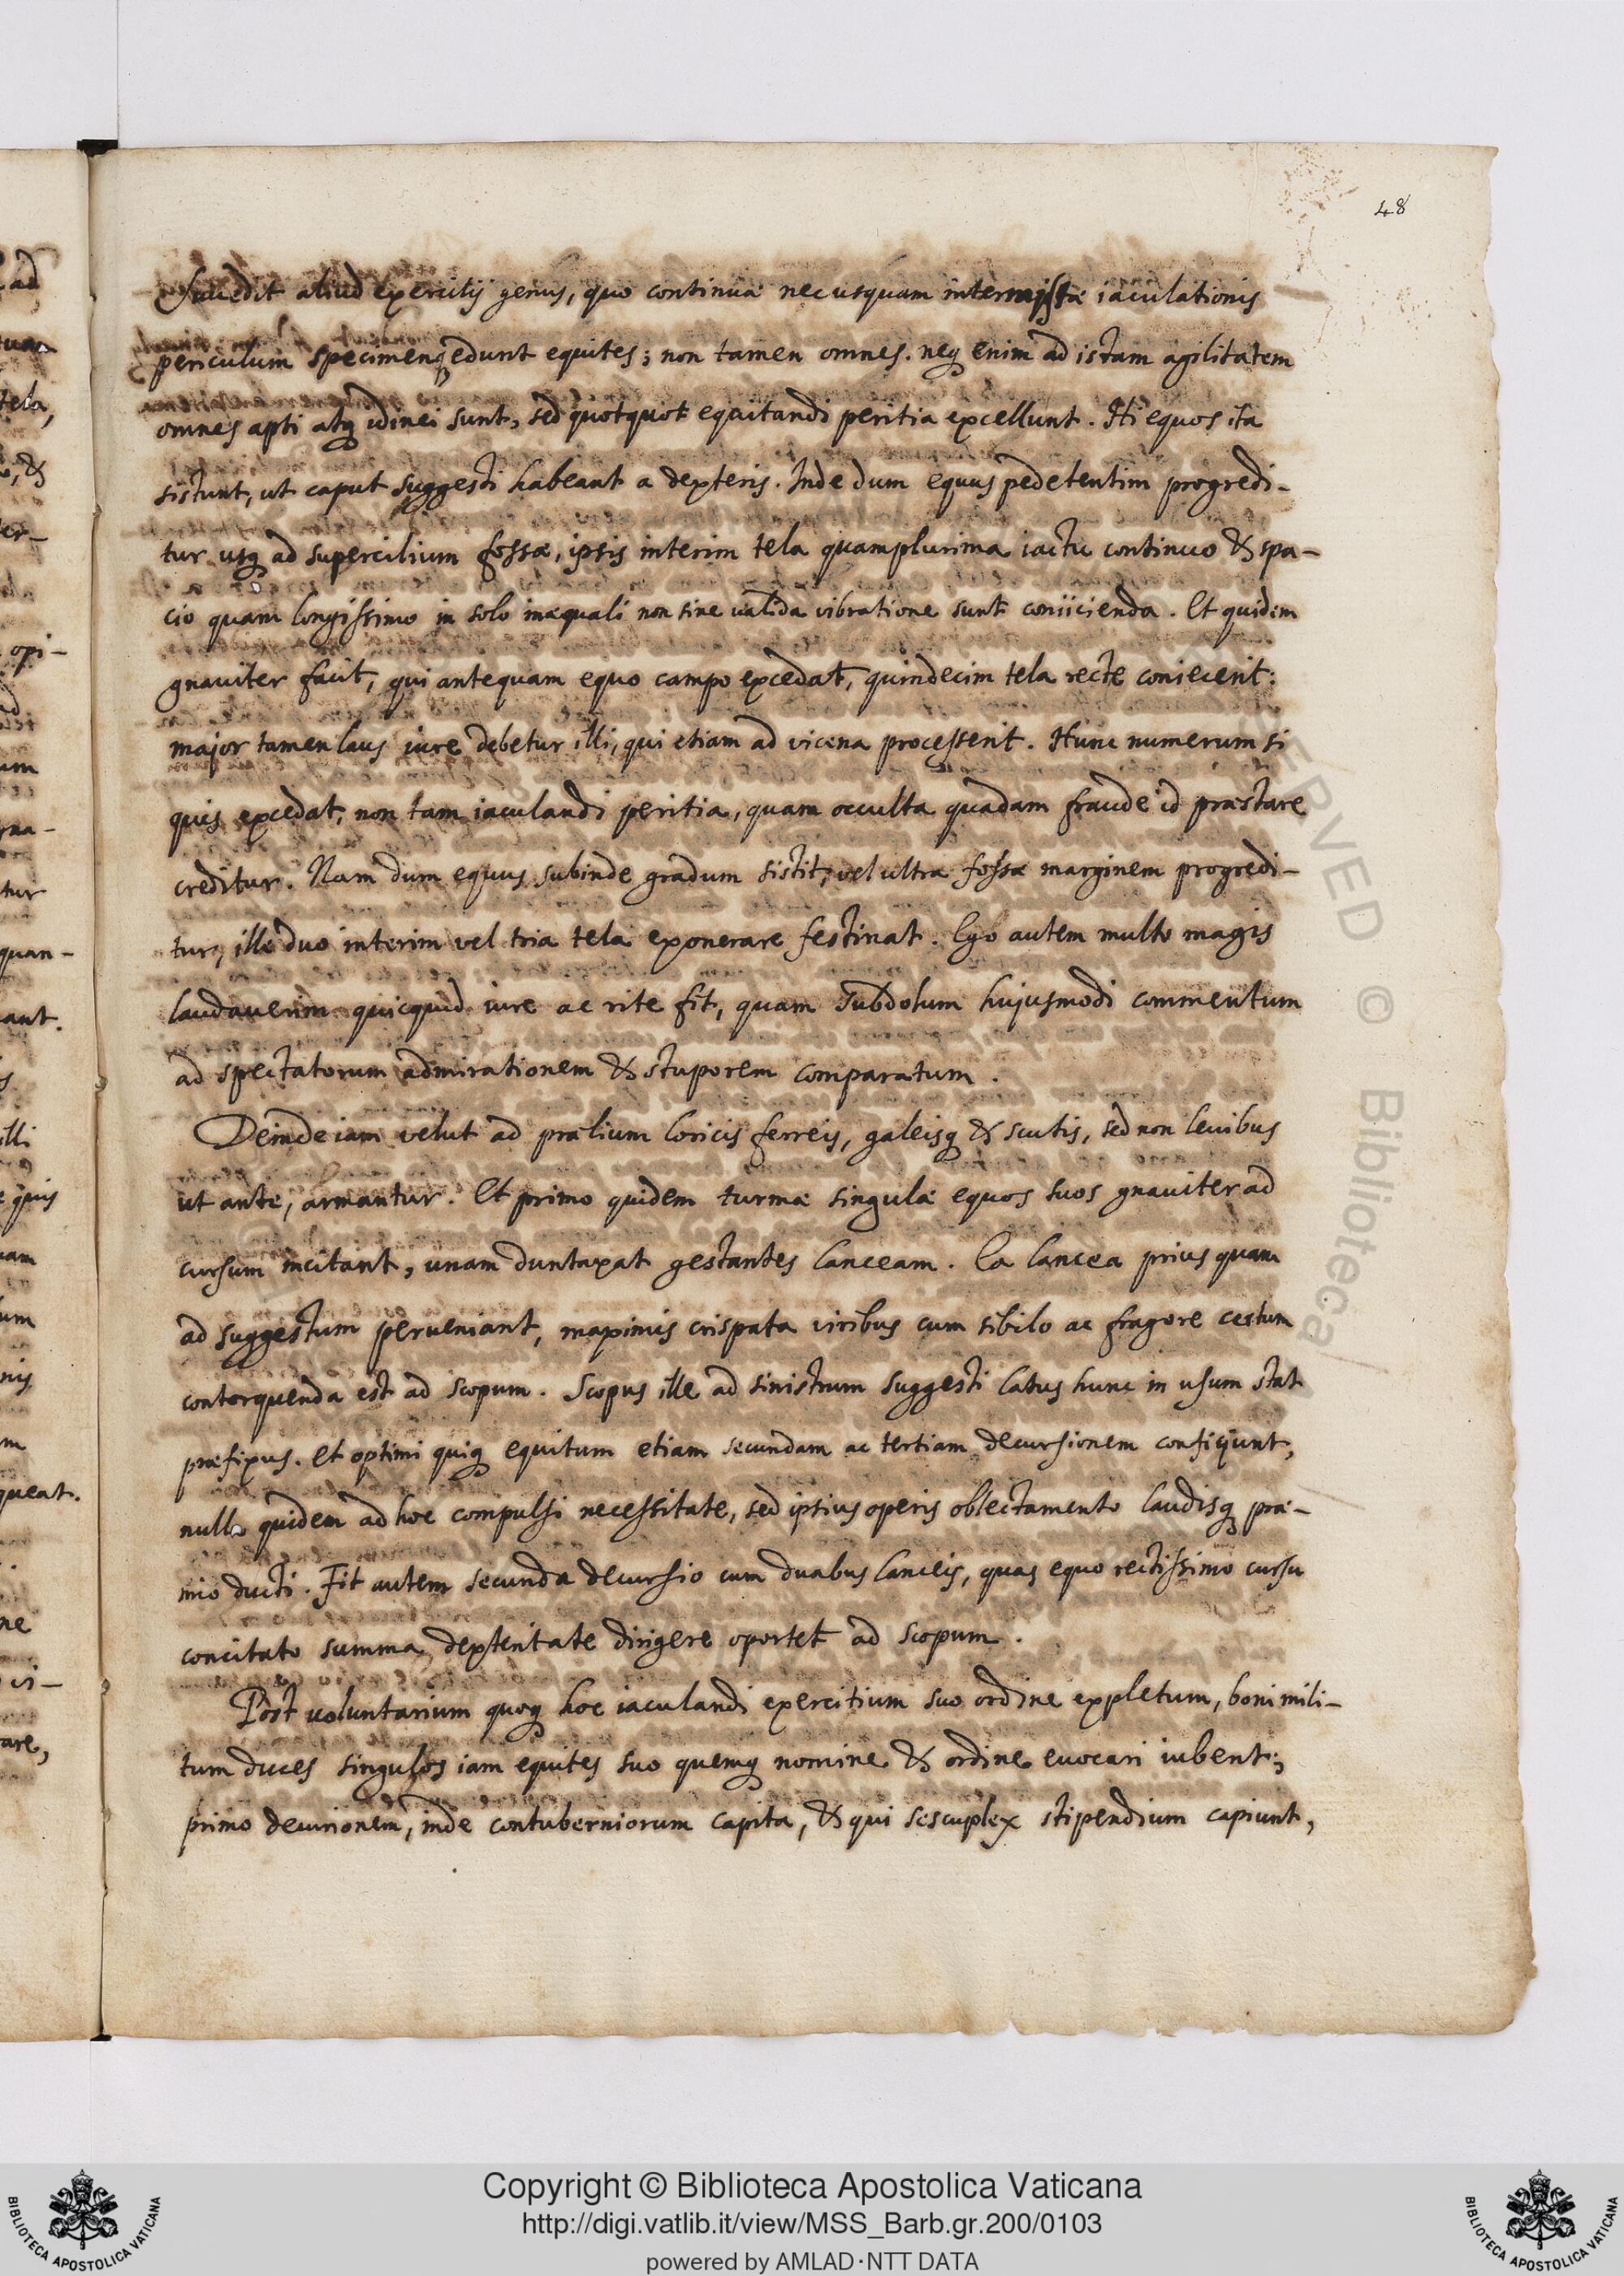 48
Succedit aliud exercitij genus, quo continuæ nec usquam intermissæ iaculationis
periculum specimenq; edunt equites; non tamen omnes. neq; enim ad istam agilitatem
omnes apti atq; idinei sunt, sed quotquot equitandi peritia excellunt. Hi equos ita
sistunt, ut caput suggesti habeant a dexteris. Inde dum equus pedetentim progredi-
tur usq; ad supercilium fossæ, ipsis interim tela quamplurima iactu continuo & spa-
cio quam longissimo in solo inæquali non sine valida vibratione sunt coniicienda. Et quidem
gnaviter facit, qui antequam equo campo excedat, quindecim tela recte coniecerit:
major tamen laus iure debetur illi, qui etiam ad vicena processerit. Hunc numerum si
quis excedat, non tam iaculandi peritia, quam occulta quadam fraude id præstare
creditur. Nam dum equus subinde gradum sistit, vel ultra fossæ marginem progredi-
tur, ille duo interim vel tria tela exonerare festinat. Ego autem multo magis
laudaverim quicquid iure ac rite fit, quam subdolum hujusmodi commentum
ad spectatorum admirationem & stuporem comparatum.
Deinde iam velut ad prælium loricis ferreis, galeisq; & scutis, sed non levibus
ut ante, armantur. Et primo quidem turmæ singulæ equos suos gnaviter ad
cursum incitant, unam duntaxat gestantes lanceam. Ea lancea prius quam
ad suggestum perveniant, maximis crispata viribus cum sibilo ac fragore certum
contorquenda est ad scopum. Scopus ille ad sinistrum suggesti latus hunc in usum stat
præfixus. Et optimi quiq; equitum etiam secundam ac tertiam decursionem conficiunt,
nulla quidem ad hoc compulsi necessitate, sed ipsius operis oblectamento laudisq; præ-
mio ducti. Fit autem secunda decursio cum duabus lanceis, quas equo rectissimo cursu
concitato summa dexteritate dirigere oportet ad scopum.
Post voluntarium quoq; hoc iaculandi exercitium suo ordine expletum, boni mili-
tum duces singulos iam equites suo quemq; nomine & ordine evocari iubent;
primo decurionem, inde contuberniorum capita, & qui sescuplex stipendium capiunt,
Copyright © Biblioteca Apostolica Vaticana
http://digi.vatlib.it/view/MSS_Barb.gr.200/0103
powered by AMLAD·NTT DATA
BIBLIOTECA APOSTOLICA VATICANA
BIBLIOTECA APOSTOLICA VATICANA